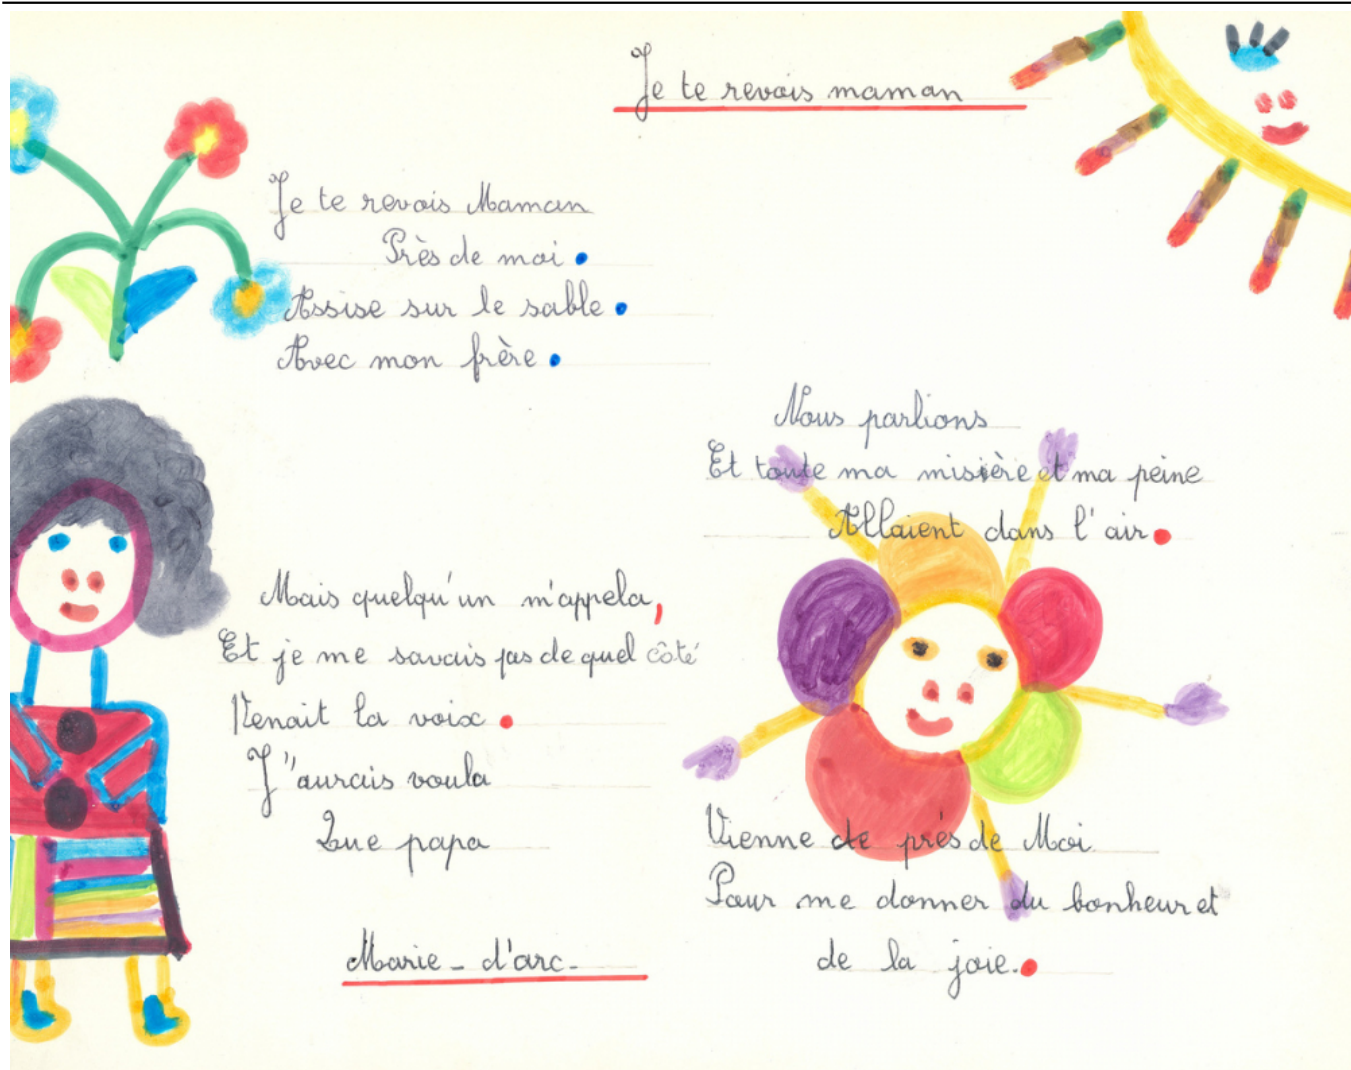 Je te revois maman
Je te revois Maman
Près de moi.
Assise sur le sable.
Avec mon frère.
Nous parlions
Et toute ma misière et ma peine
Allaient dans l'air.
Mais quelqu'un m'appela,
Et je me savais pas de quel côté
Venait la voix.
J"aurais voula
Que papa
Vienne de près de Moi
Pour me donner du bonheur et
de la joie.
Marie - d'arc -